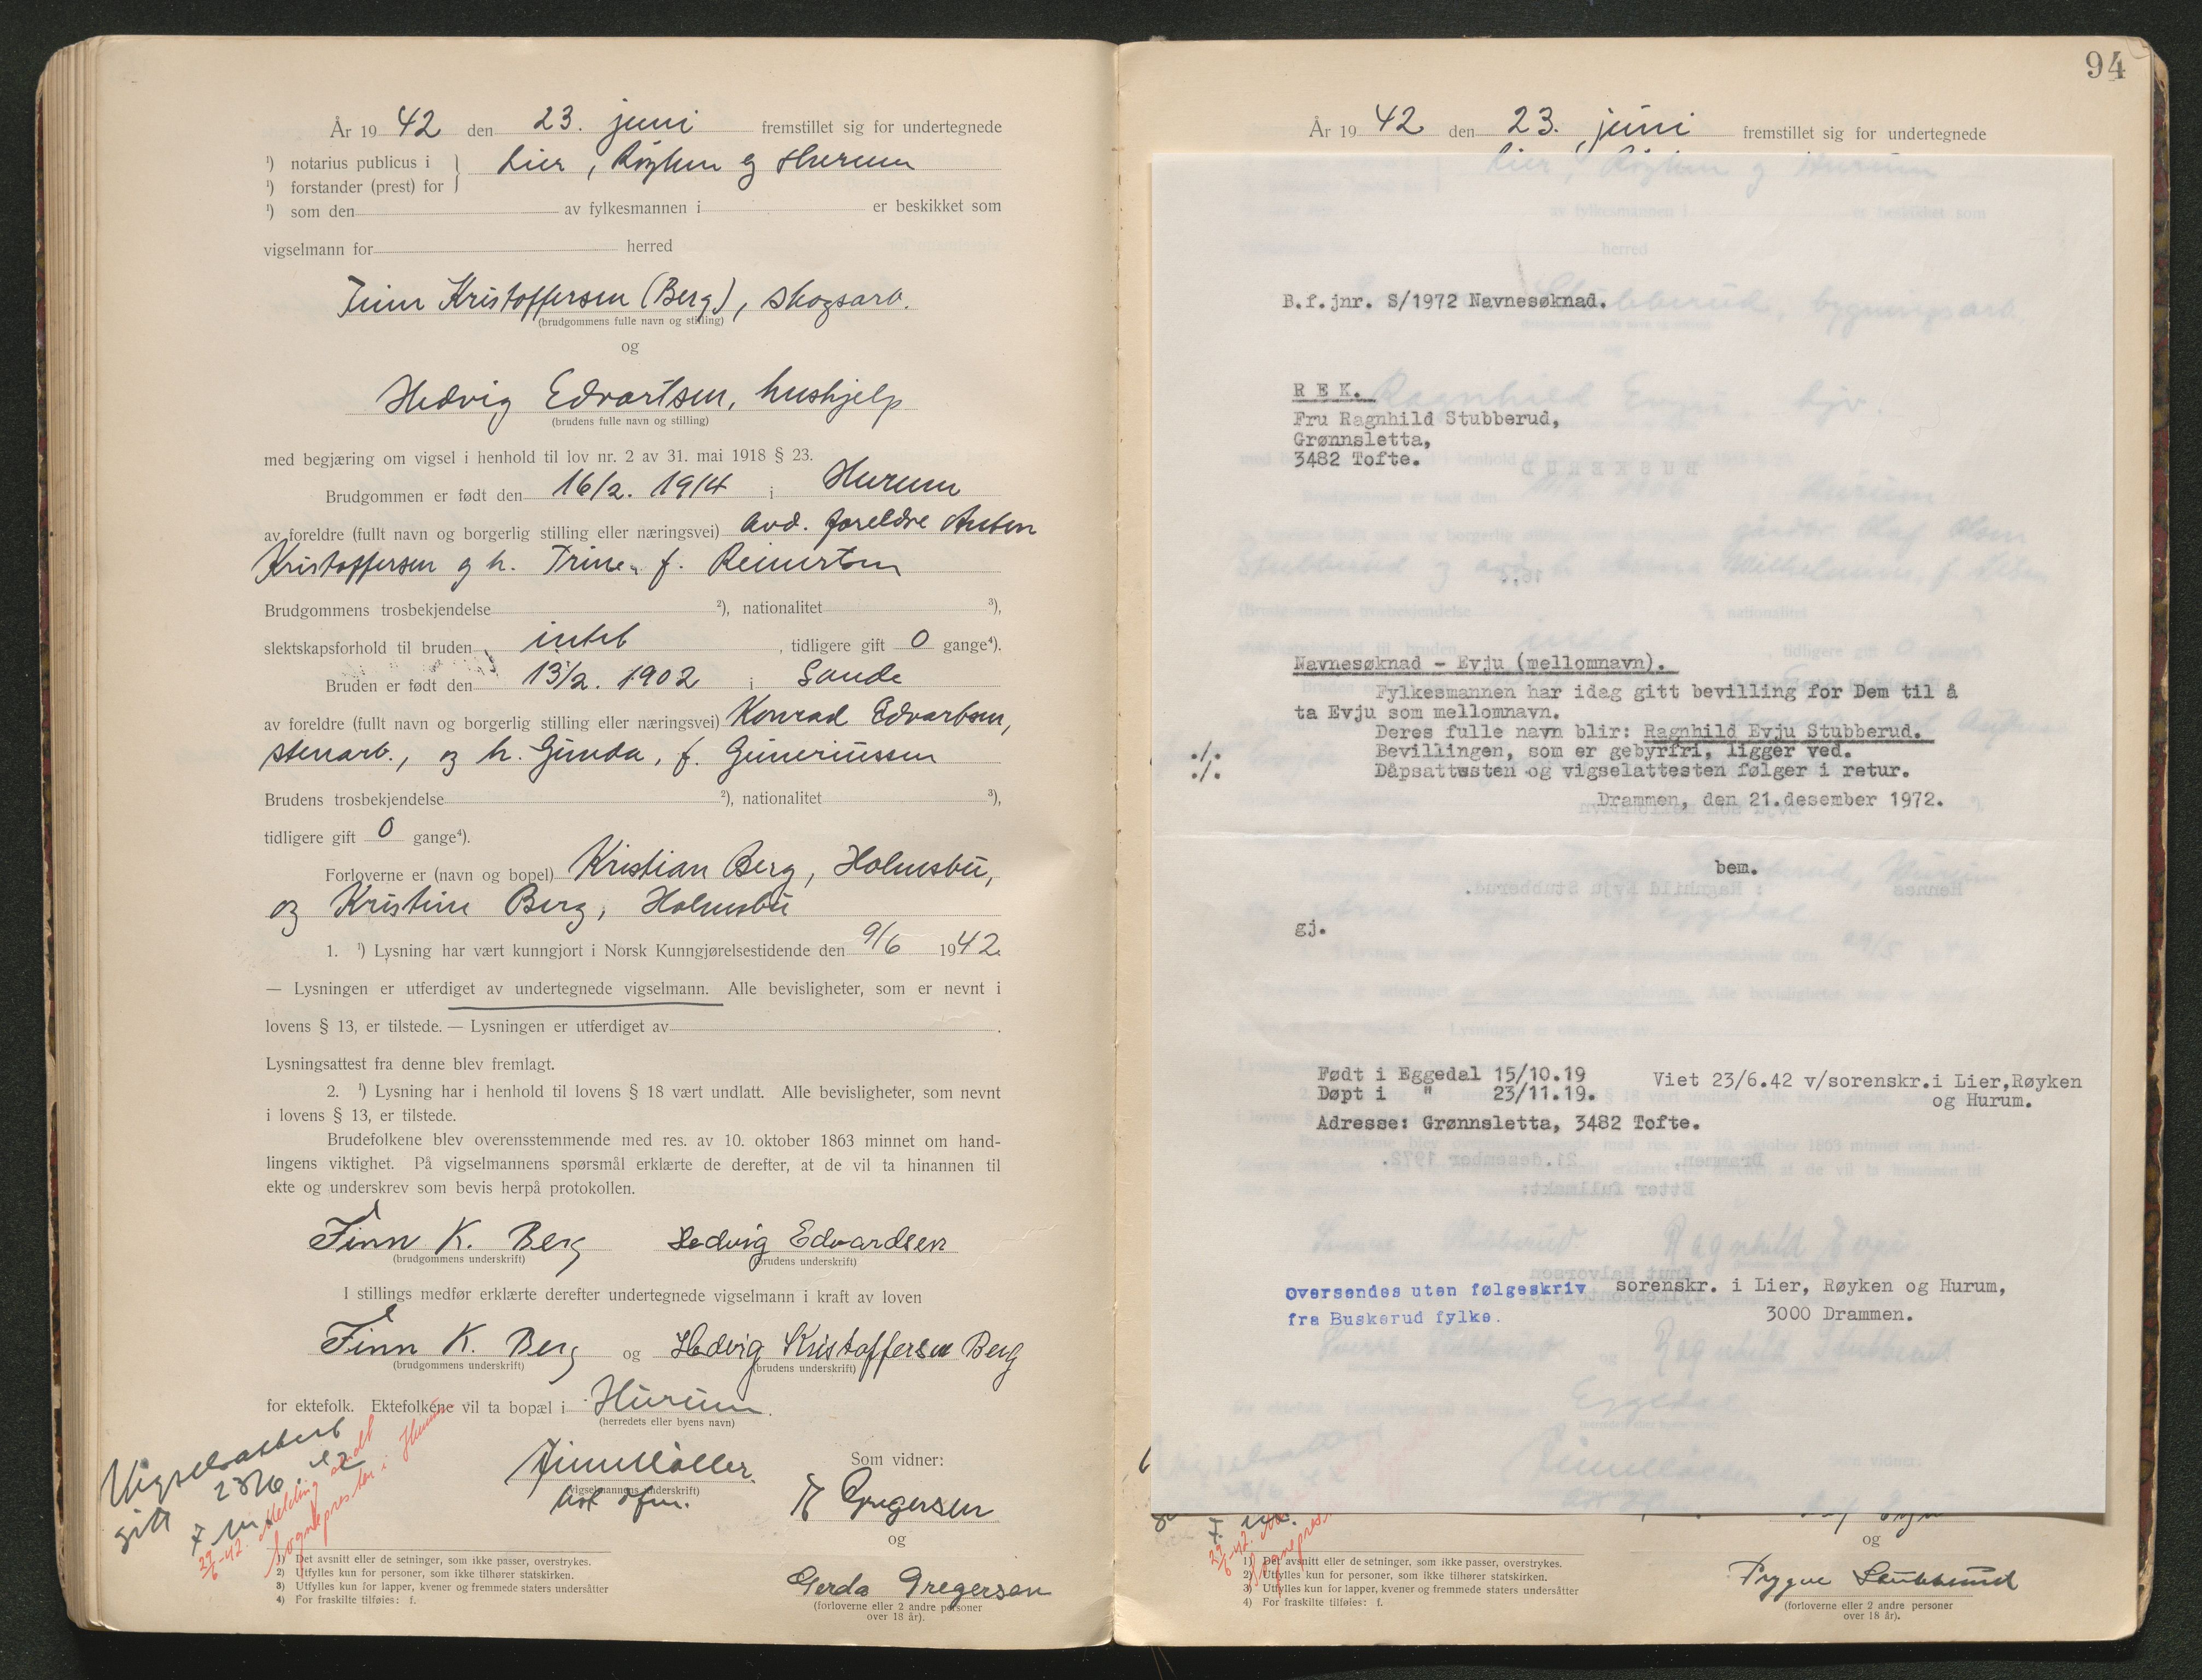 År 19 42 den 23. juni fremstillet sig for undertegnede
¹) notarius publicus i } Lier, Røyken og Hurum
¹) forstander (prest) for
¹) som den av fylkesmannen i er beskikket som
vigselmann for herred
Finn Kristoffersen (Berg), skogsarb.
(brudgommens fulle navn og stilling)
og
Hedvig Edvartsen, hushjelp
(brudens fulle navn og stilling)
med begjæring om vigsel i henhold til lov nr. 2 av 31. mai 1918 § 23.
Brudgommen er født den 16/2. 1914 i Hurum
av foreldre (fullt navn og borgerlig stilling eller næringsvei) avd. foreldre Anton
Kristoffersen og h. Trine, f. Reinertsen
Brudgommens trosbekjendelse ²), nationalitet ³),
slektskapsforhold til bruden intet , tidligere gift 0 gange⁴).
Bruden er født den 13/2. 1902 i Sande
av foreldre (fullt navn og borgerlig stilling eller næringsvei) Konrad Edvartsen,
stenarb., og h. Gunda, f. Guneriussen
Brudens trosbekjendelse ²), nationalitet ³),
tidligere gift 0 gange⁴).
Forloverne er (navn og bopel) Kristian Berg, Holmsbu,
og Kristine Berg, Holmsbu
1. ¹) Lysning har vært kunngjort i Norsk Kunngjørelsestidende den 9/6 1942.
— Lysningen er utferdiget av undertegnede vigselmann. Alle bevisligheter, som er nevnt i
lovens § 13, er tilstede. — Lysningen er utferdiget av .
Lysningsattest fra denne blev fremlagt.
2. ¹) Lysning har i henhold til lovens § 18 vært undlatt. Alle bevisligheter, som nevnt
i lovens § 13, er tilstede.
Brudefolkene blev overensstemmende med res. av 10. oktober 1863 minnet om hand-
lingens viktighet. På vigselmannens spørsmål erklærte de derefter, at de vil ta hinannen til
ekte og underskrev som bevis herpå protokollen.
Finn K. Berg Hedvig Edvardsen
(brudgommens underskrift) (brudens underskrift)
I stillings medfør erklærte derefter undertegnede vigselmann i kraft av loven
Finn K. Berg og Hedvig Kristoffersen Berg
(brudgommens underskrift) (brudens underskrift)
for ektefolk. Ektefolkene vil ta bopæl i Hurum.
(herredets eller byens navn)
Vigselsattest
gitt 23/6.42
29/6-42. Melding sendt
Sogneprester i Hurum
(vigselmannens underskrift)
Som vidner:
Gregersen
og
Gerda Gregersen
(forloverne eller 2 andre personer
over 18 år).
1) Det avsnitt eller de setninger, som ikke passer, overstrykes.
2) Utfylles kun for personer, som ikke tilhører statskirken.
3) Utfylles kun for lapper, kvener og fremmede staters undersåtter
4) For fraskilte tilføies: f.
94
År 19 42 den 23. juni fremstillet sig for undertegnede
B.f.jnr. S/1972 Navnesøknad.
R E K.
Fru Ragnhild Stubberud,
Grønnsletta,
3482 Tofte.
Navnesøknad - Evju (mellomnavn).
Fylkesmannen har idag gitt bevilling for Dem til å
ta Evju som mellomnavn.
Deres fulle navn blir: Ragnhild Evju Stubberud.
./. Bevillingen, som er gebyrfri, ligger ved.
./. Dåpsattesten og vigselattesten følger i retur.
Drammen, den 21.desember 1972.
bem.
gj.
Født i Eggedal 15/10.19 Viet 23/6.42 v/sorenskr.i Lier,Røyken
Døpt i " 23/11.19. og Hurum.
Adresse: Grønnsletta, 3482 Tofte.
Oversendes uten følgeskriv sorenskr. i Lier, Røyken og Hurum,
fra Buskerud fylke. 3000 Drammen.
og
Trygve Stubberud
(forloverne eller 2 andre personer
over 18 år).
1) Det avsnitt eller de setninger, som ikke passer, overstrykes.
2) Utfylles kun for personer, som ikke tilhører statskirken.
3) Utfylles kun for lapper, kvener og fremmede staters undersåtter
4) For fraskilte tilføies: f.